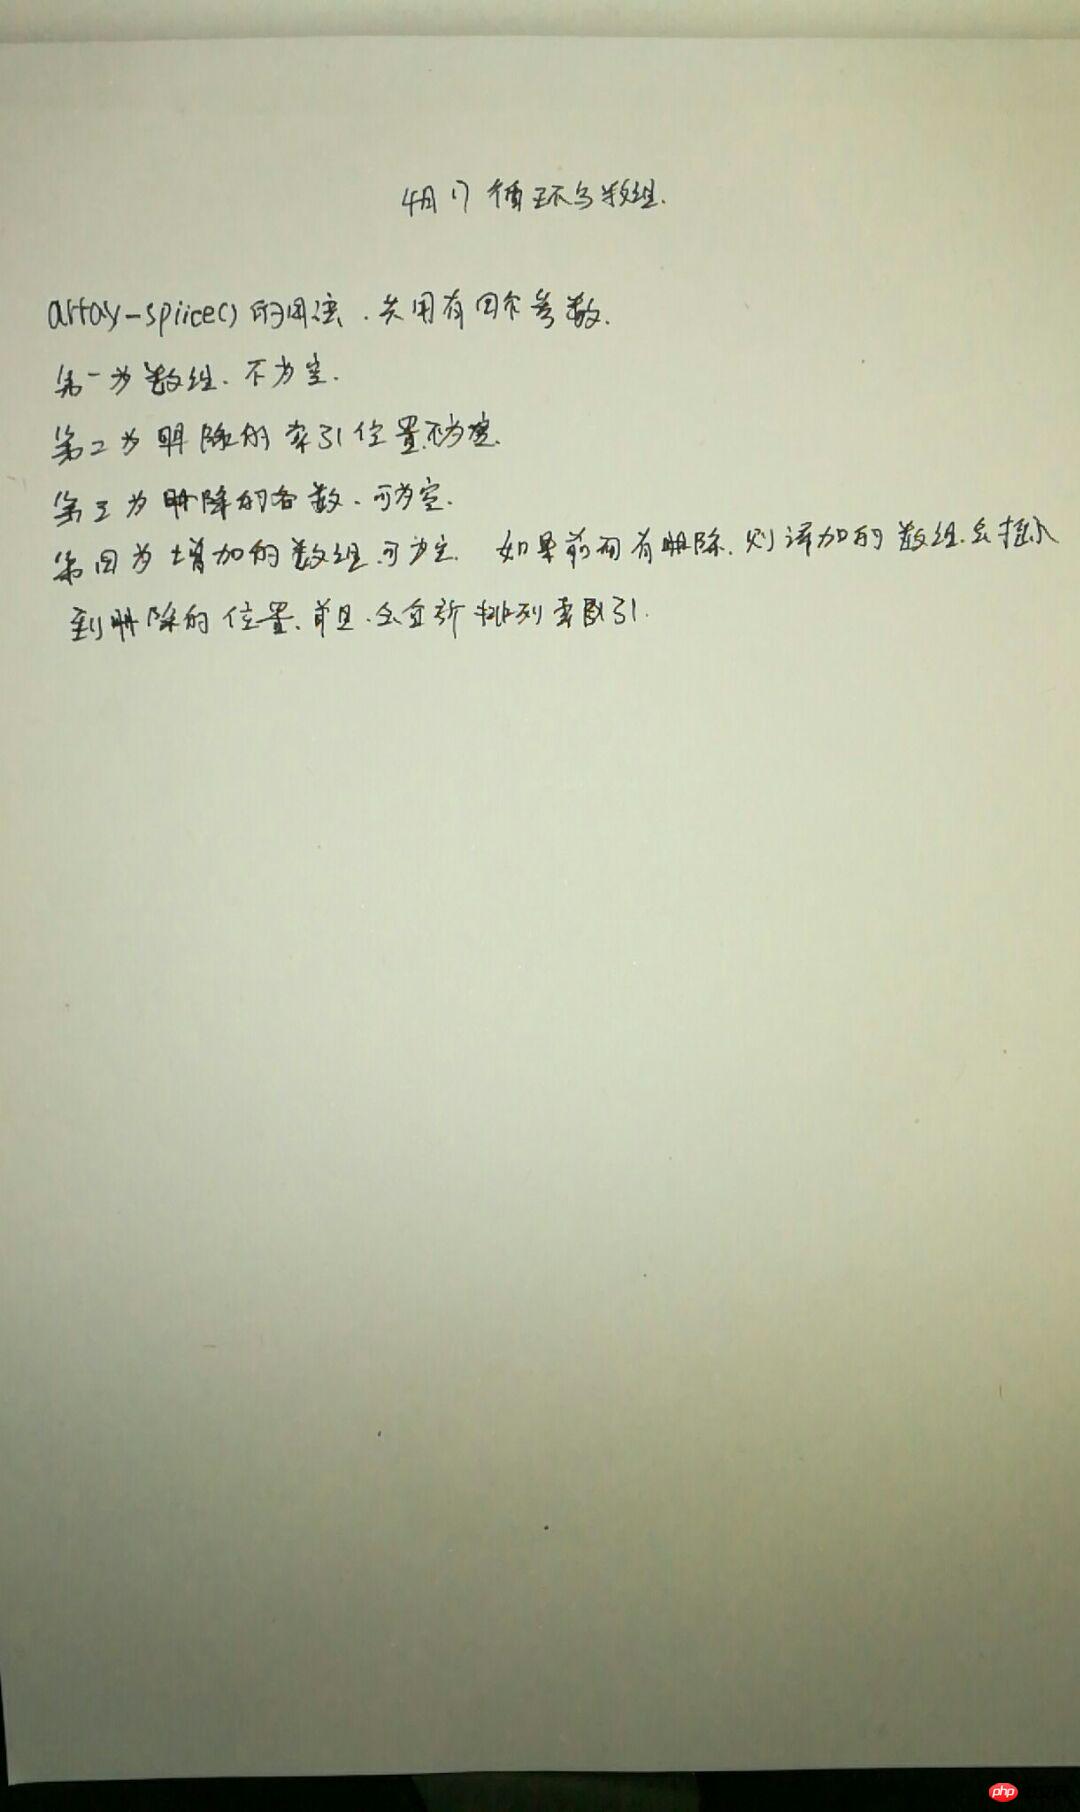 4月17 循环与数组.
array-spiice() 的用法.共用有四个参数.
第一为数组.不为空.
第二为删除的索引位置不为空.
第三为删除的各数.可为空.
第四为增加的数组.可为空. 如果前面有删除.则译加的数组.会插入
到删除的位置.并且.会重新排列索引.
php